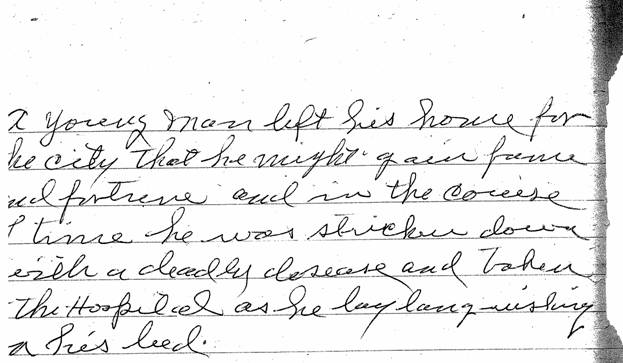 A young man left his home for
he city that he might gain fame
nd fortune and in the course
f time he was stricken down
with a deadly desease and taken
the Hospital as he lay languishing
n his bed.